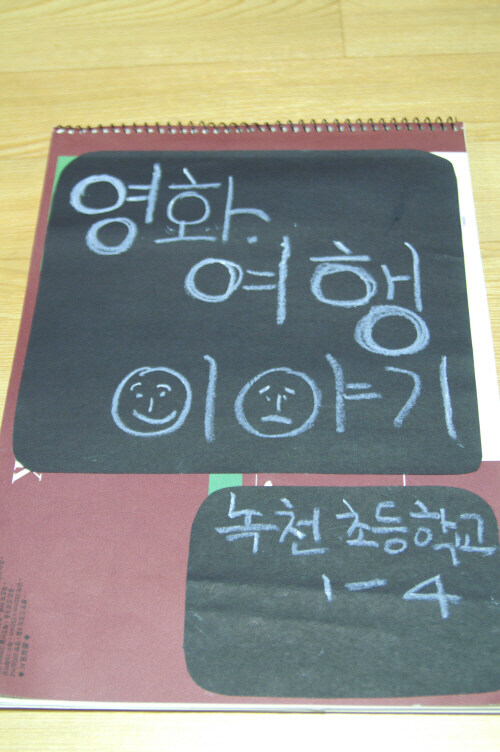 영화
여행
이야기
녹천 초등학교
1-4